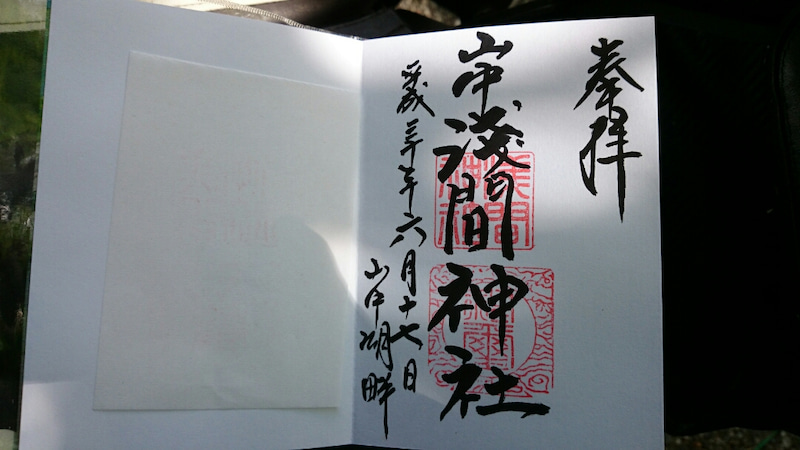 奉拝
山中浅間神社
平成三十年六月十七日
山中湖畔